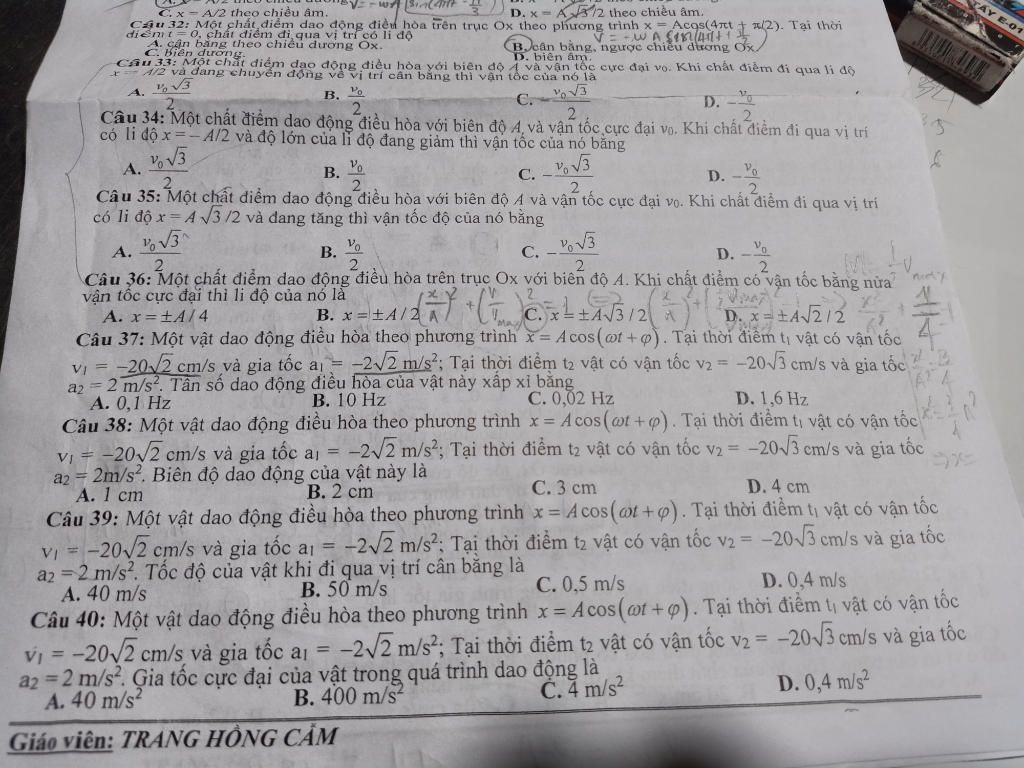 C. x = A/2 theo chiều âm. D. x = A√3/2 theo chiều âm.
Câu 32: Một chất điểm dao động điều hòa trên trục Ox theo phương trình x = Acos(4πt + π/2). Tại thời
điểm t = 0, chất điểm đi qua vị trí có li độ
A. cân bằng theo chiều dương Ox. B. cân bằng, ngược chiều dương Ox
C. biên dương. D. biên âm.
Câu 33: Một chất điểm dao động điều hòa với biên độ A và vận tốc cực đại v₀. Khi chất điểm đi qua li độ
x = A/2 và đang chuyển động về vị trí cân bằng thì vận tốc của nó là
A. v₀√3/2 B. v₀/2 C. −v₀√3/2 D. −v₀/2
Câu 34: Một chất điểm dao động điều hòa với biên độ A và vận tốc cực đại v₀. Khi chất điểm đi qua vị trí
có li độ x = − A/2 và độ lớn của li độ đang giảm thì vận tốc của nó bằng
A. v₀√3/2 B. v₀/2 C. −v₀√3/2 D. −v₀/2
Câu 35: Một chất điểm dao động điều hòa với biên độ A và vận tốc cực đại v₀. Khi chất điểm đi qua vị trí
có li độ x = A√3/2 và đang tăng thì vận tốc độ của nó bằng
A. v₀√3/2 B. v₀/2 C. −v₀√3/2 D. −v₀/2
Câu 36: Một chất điểm dao động điều hòa trên trục Ox với biên độ A. Khi chất điểm có vận tốc bằng nửa
vận tốc cực đại thì li độ của nó là
A. x = ±A/4 B. x = ±A/2 C. x = ±A√3/2 D. x = ±A√2/2
Câu 37: Một vật dao động điều hòa theo phương trình x = Acos(ωt + φ). Tại thời điểm t₁ vật có vận tốc
v₁ = −20√2 cm/s và gia tốc a₁ = −2√2 m/s²; Tại thời điểm t₂ vật có vận tốc v₂ = −20√3 cm/s và gia tốc
a₂ = 2 m/s². Tần số dao động điều hòa của vật này xấp xỉ bằng
A. 0,1 Hz B. 10 Hz C. 0,02 Hz D. 1,6 Hz
Câu 38: Một vật dao động điều hòa theo phương trình x = Acos(ωt + φ). Tại thời điểm t₁ vật có vận tốc
v₁ = −20√2 cm/s và gia tốc a₁ = −2√2 m/s²; Tại thời điểm t₂ vật có vận tốc v₂ = −20√3 cm/s và gia tốc
a₂ = 2m/s². Biên độ dao động của vật này là
A. 1 cm B. 2 cm C. 3 cm D. 4 cm
Câu 39: Một vật dao động điều hòa theo phương trình x = Acos(ωt + φ). Tại thời điểm t₁ vật có vận tốc
v₁ = −20√2 cm/s và gia tốc a₁ = −2√2 m/s²; Tại thời điểm t₂ vật có vận tốc v₂ = −20√3 cm/s và gia tốc
a₂ = 2 m/s². Tốc độ của vật khi đi qua vị trí cân bằng là
A. 40 m/s B. 50 m/s C. 0,5 m/s D. 0,4 m/s
Câu 40: Một vật dao động điều hòa theo phương trình x = Acos(ωt + φ). Tại thời điểm t₁ vật có vận tốc
v₁ = −20√2 cm/s và gia tốc a₁ = −2√2 m/s²; Tại thời điểm t₂ vật có vận tốc v₂ = −20√3 cm/s và gia tốc
a₂ = 2 m/s². Gia tốc cực đại của vật trong quá trình dao động là
A. 40 m/s² B. 400 m/s² C. 4 m/s² D. 0,4 m/s²
Giáo viên: TRANG HỒNG CẨM